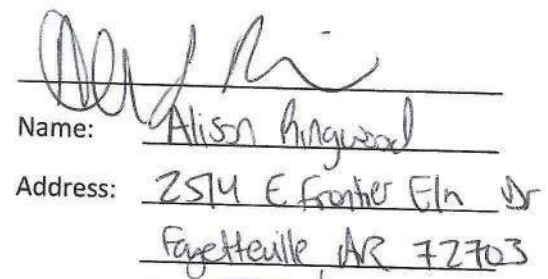 Name: Alison Ringwood
Address: 2514 E Frontier Elm Dr
Fayetteville AR 72703